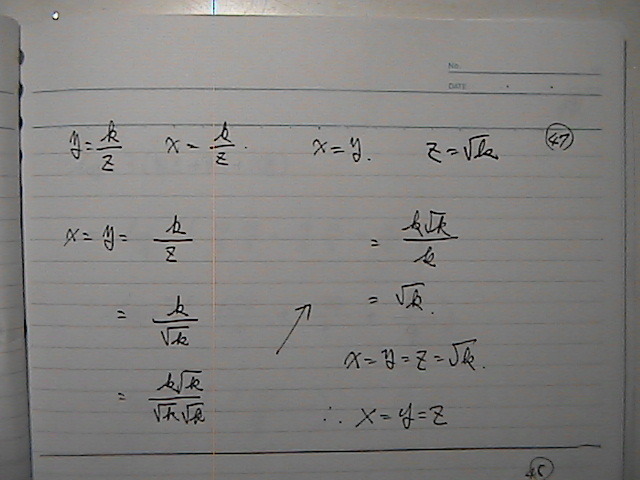 No.
DATE
y = k/z x = k/z. x = y. z = √k ㊼
x = y = k/z
= k/√k
= k√k/√k√k
= k√k/k
= √k.
x = y = z = √k.
∴ x = y = z